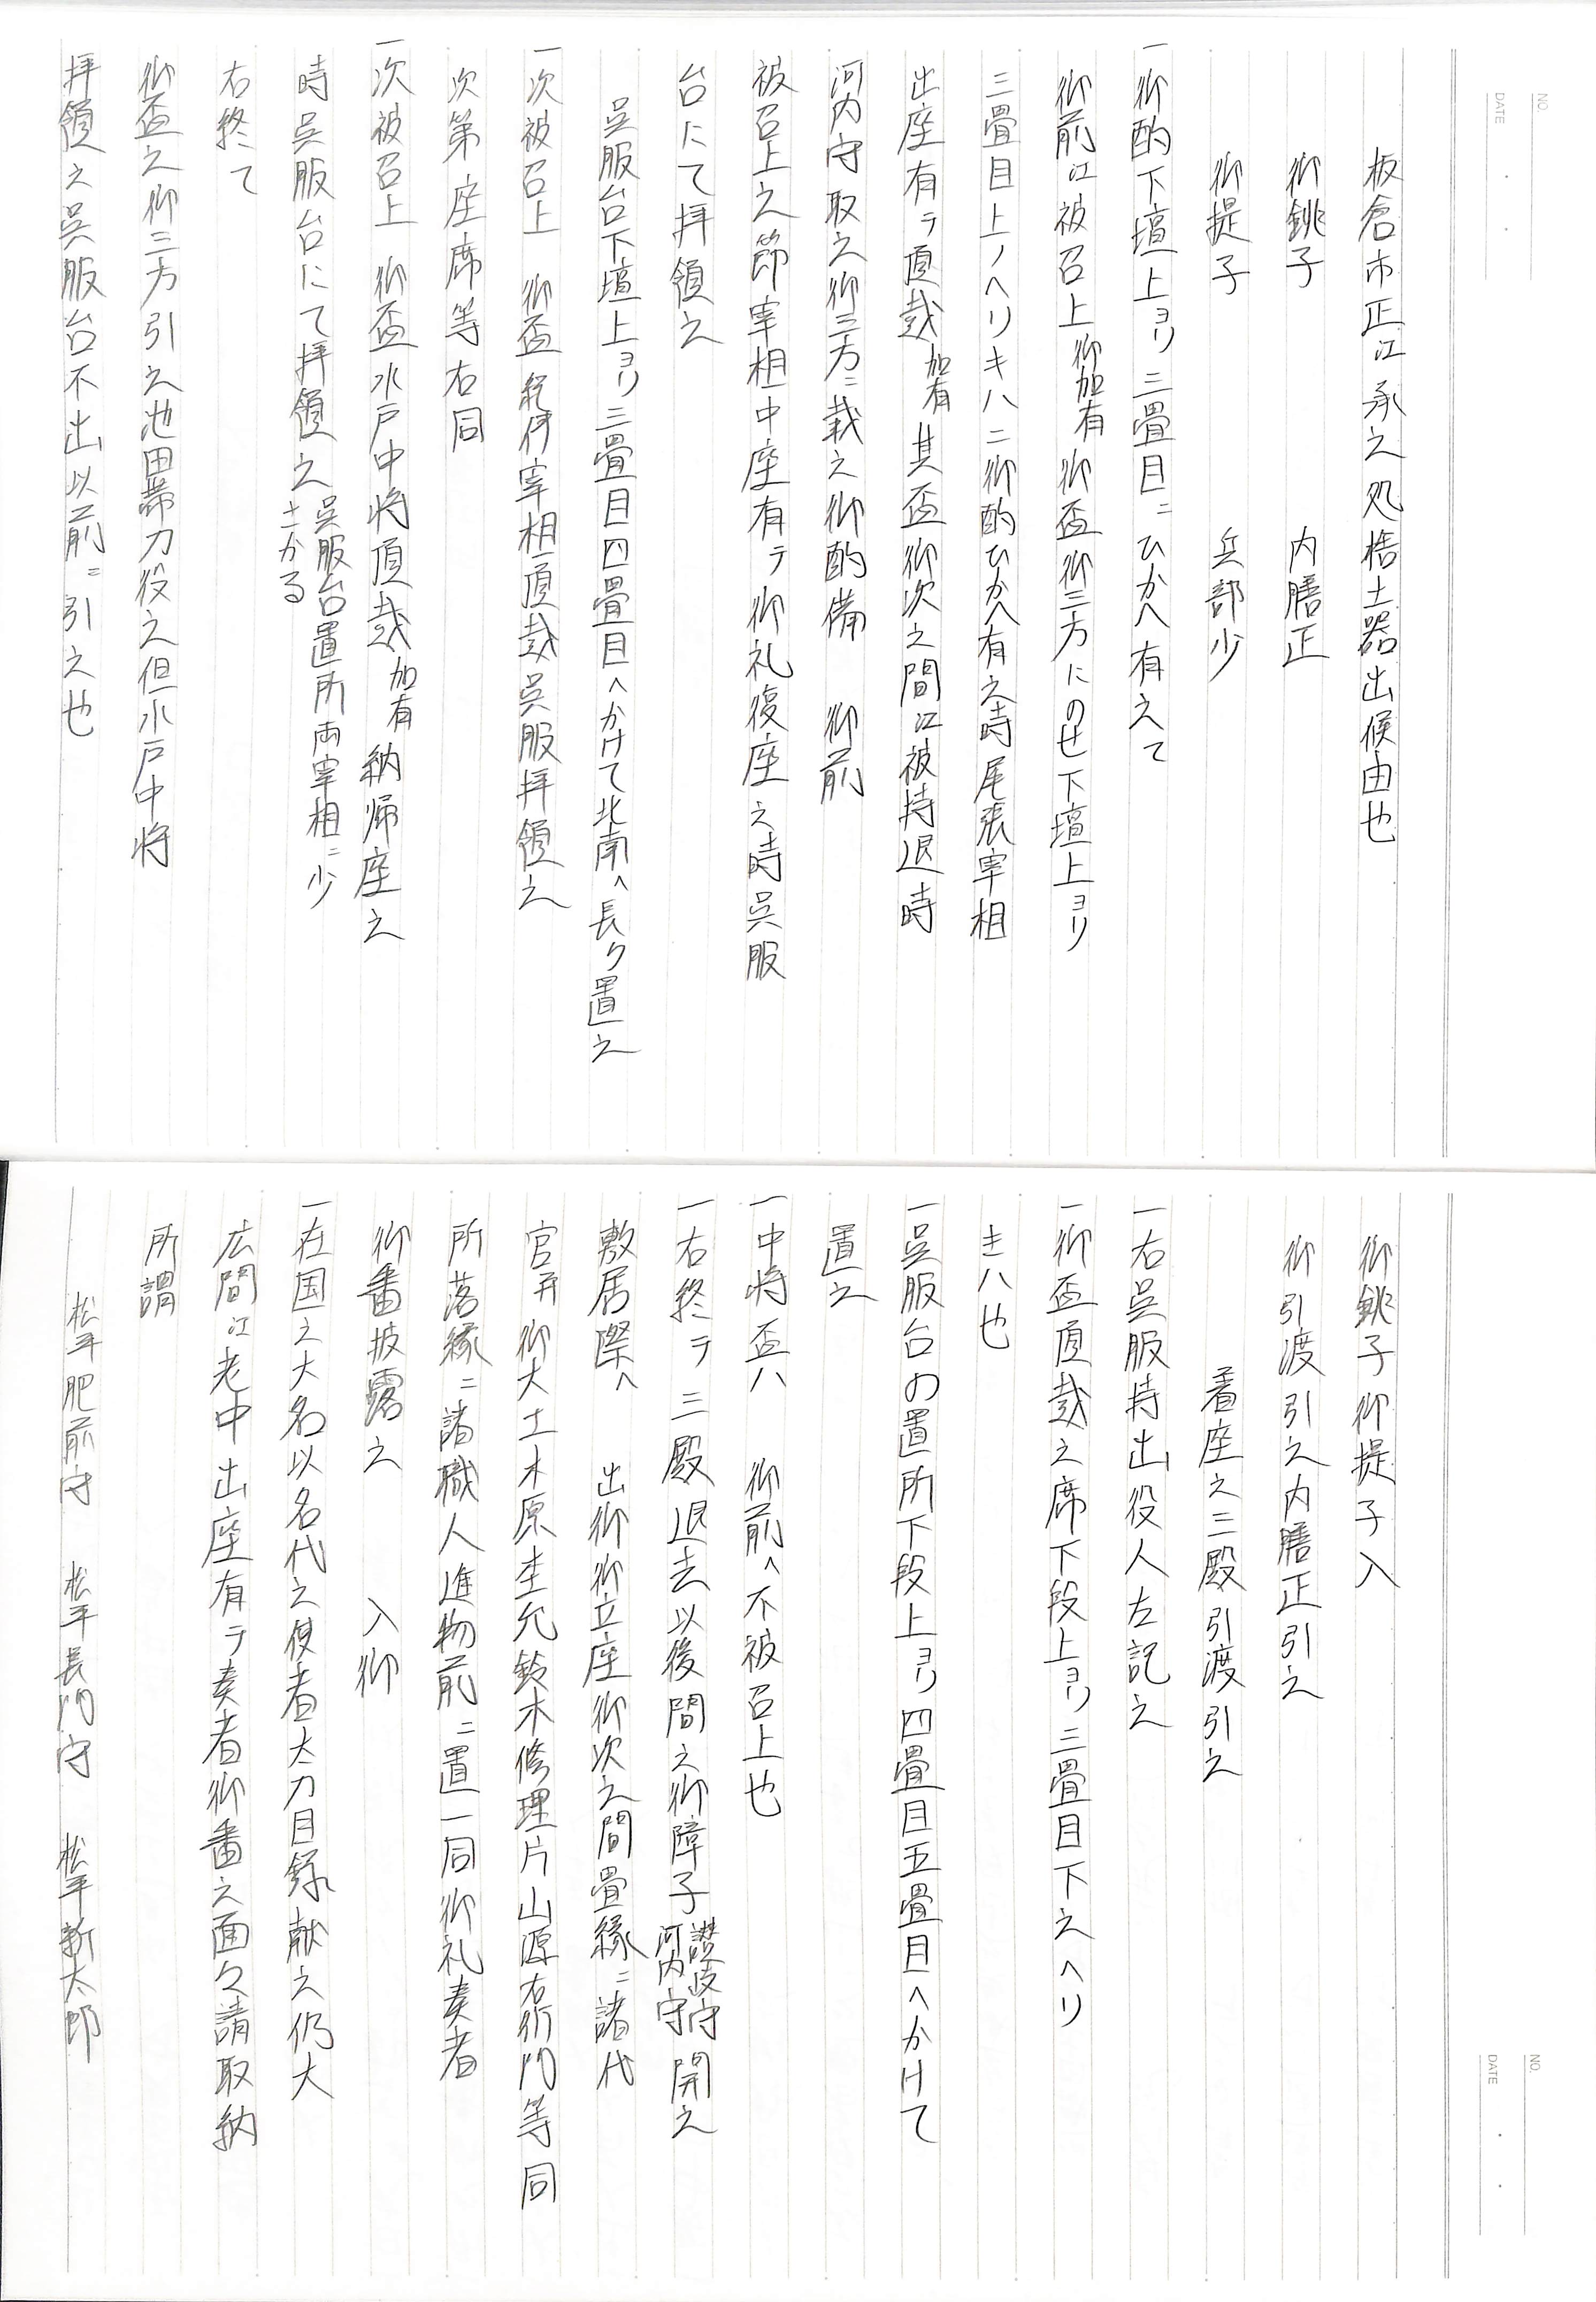 NO.
DATE
板倉市正江承之処捨土器出候由也
御銚子　内膳正
御提子　兵部少
一御酌下壇上ヨリ三畳目ニひかへ有之て
御前江被召上御加有御盃御三方にのせ下壇上ヨリ
三畳目上ノヘリキハニ御酌ひかへ有之時尾張宰相
出座有テ頂戴加有其盃御次之間江被持退時
河内守取之御三方ニ載之御酌備　御前
被召上之節宰相中座有テ御礼復座之時呉服
台にて拝領之
呉服台下壇上ヨリ三畳目四畳目へかけて北南へ長ク置之
一次被召上　御盃紀伊宰相頂戴呉服拝領之
次第座席等右同
一次被召上　御盃水戸中将頂戴加有納帰座之
時呉服台にて拝領之呉服台置所両宰相ニ少
さかる
右終て
御盃之御三方引之池田帯刀役之但水戸中将
拝領之呉服台不出以前ニ引之也
御銚子御提子入
御引渡引之内膳正引之
着座之三殿引渡引之
一右呉服持出役人左記之
一御盃頂戴之席下段上ヨリ三畳目下之ヘリ
キハ也
一呉服台の置所下段上ヨリ四畳目五畳目へかけて
置之
一中将盃ハ　御前へ不被召上也
一右終テ三殿退去以後間之御障子讃岐守河内守開之
敷居際へ　出御御立座御次之間畳縁ニ諸代
官并御大工木原杢允鈴木修理片山源右衛門等同
所落縁ニ諸職人進物前ニ置一同御礼奏者
御番披露之　入御
一在国之大名以名代之使者太刀目録献之仍大
広間江老中出座有テ奏者御番之面々請取納
所謂
松平肥前守　松平長門守　松平新太郎
NO.
DATE